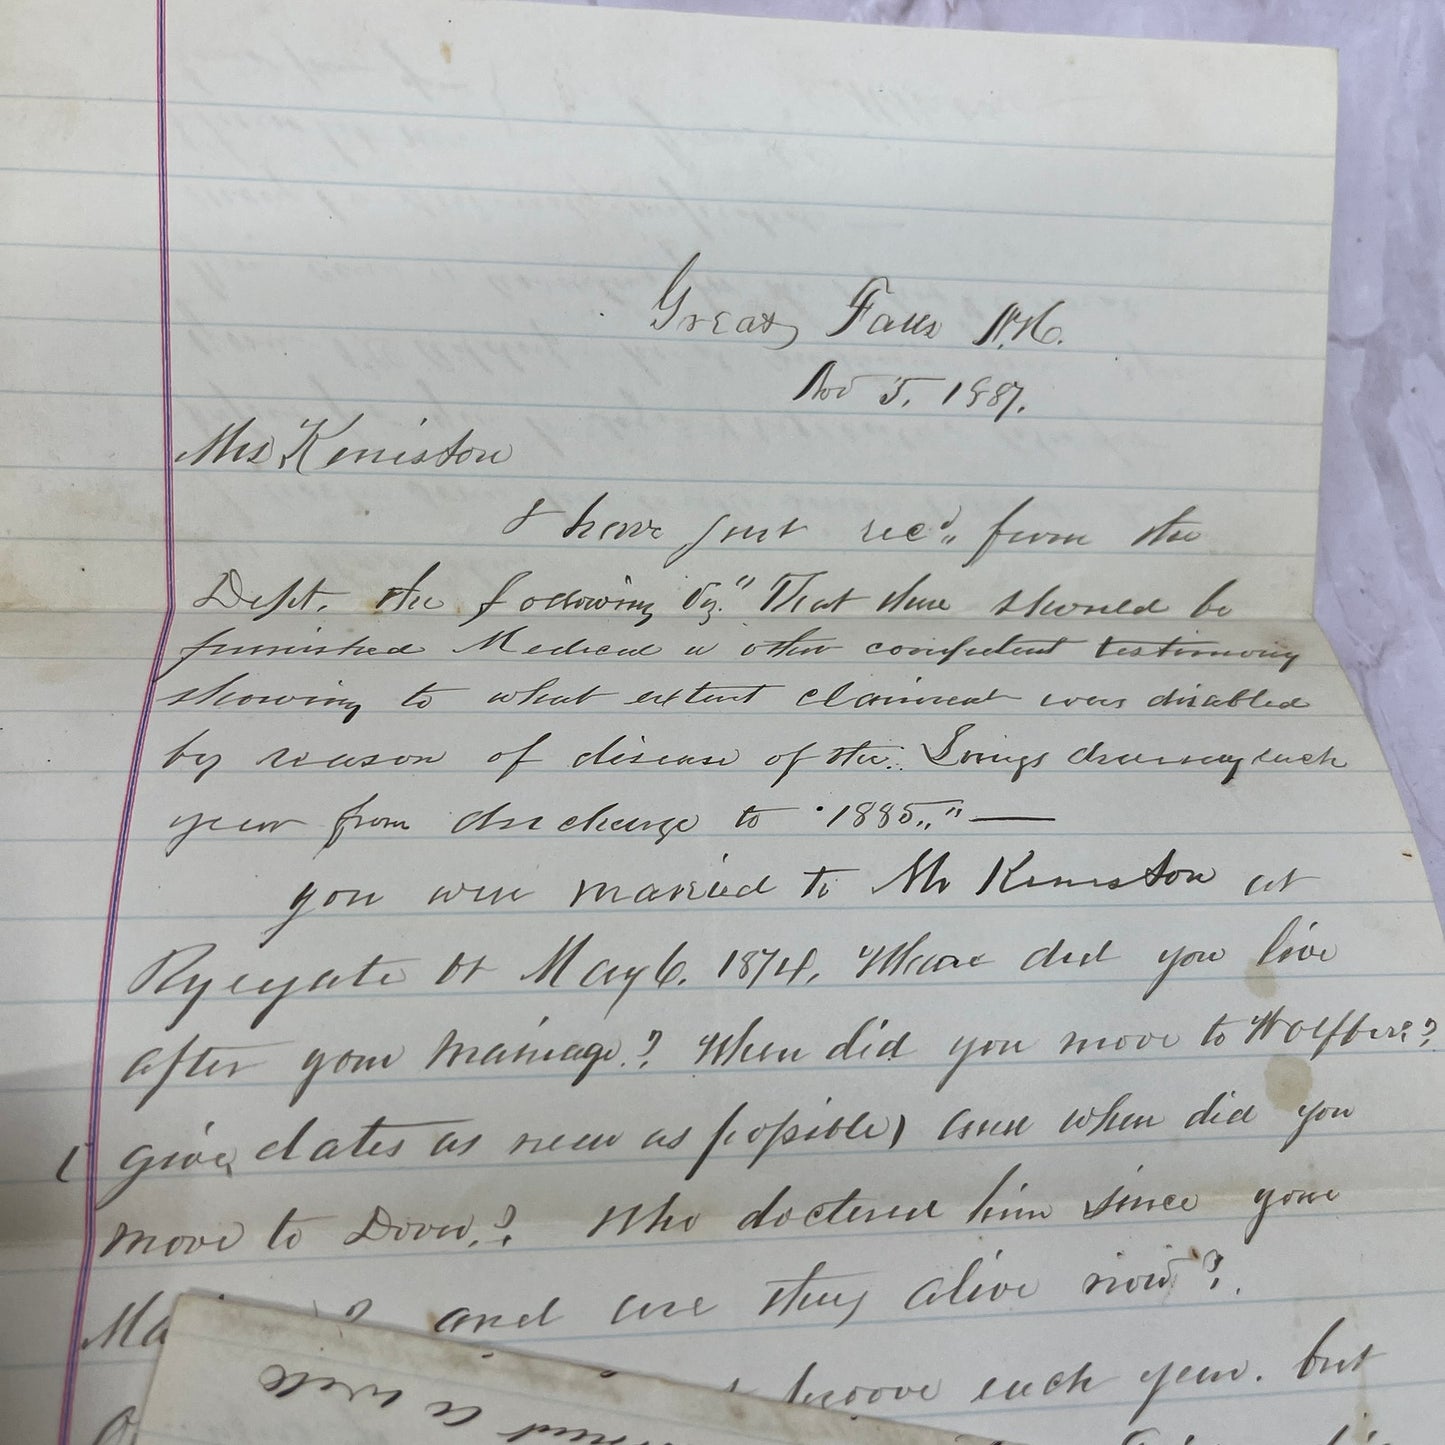 Great Falls N.H.
Nov 5. 1887.
Mrs Keniston
I have just rec'd from the
Dept. the following Viz." That there should be
furnished Medical or other competent testimony
showing to what extent claimant was disabled
by reason of disease of the Lungs during each
year from discharge to 1885.," —
you were married to Mr Keniston at
Ryegate Vt May 6. 1874, Where did you live
after your marriage? When did you move to Wolfboro?
( give dates as near as possible) and when did you
move to Dover? Who doctored him since your
and are they alive now?
prove each year. but